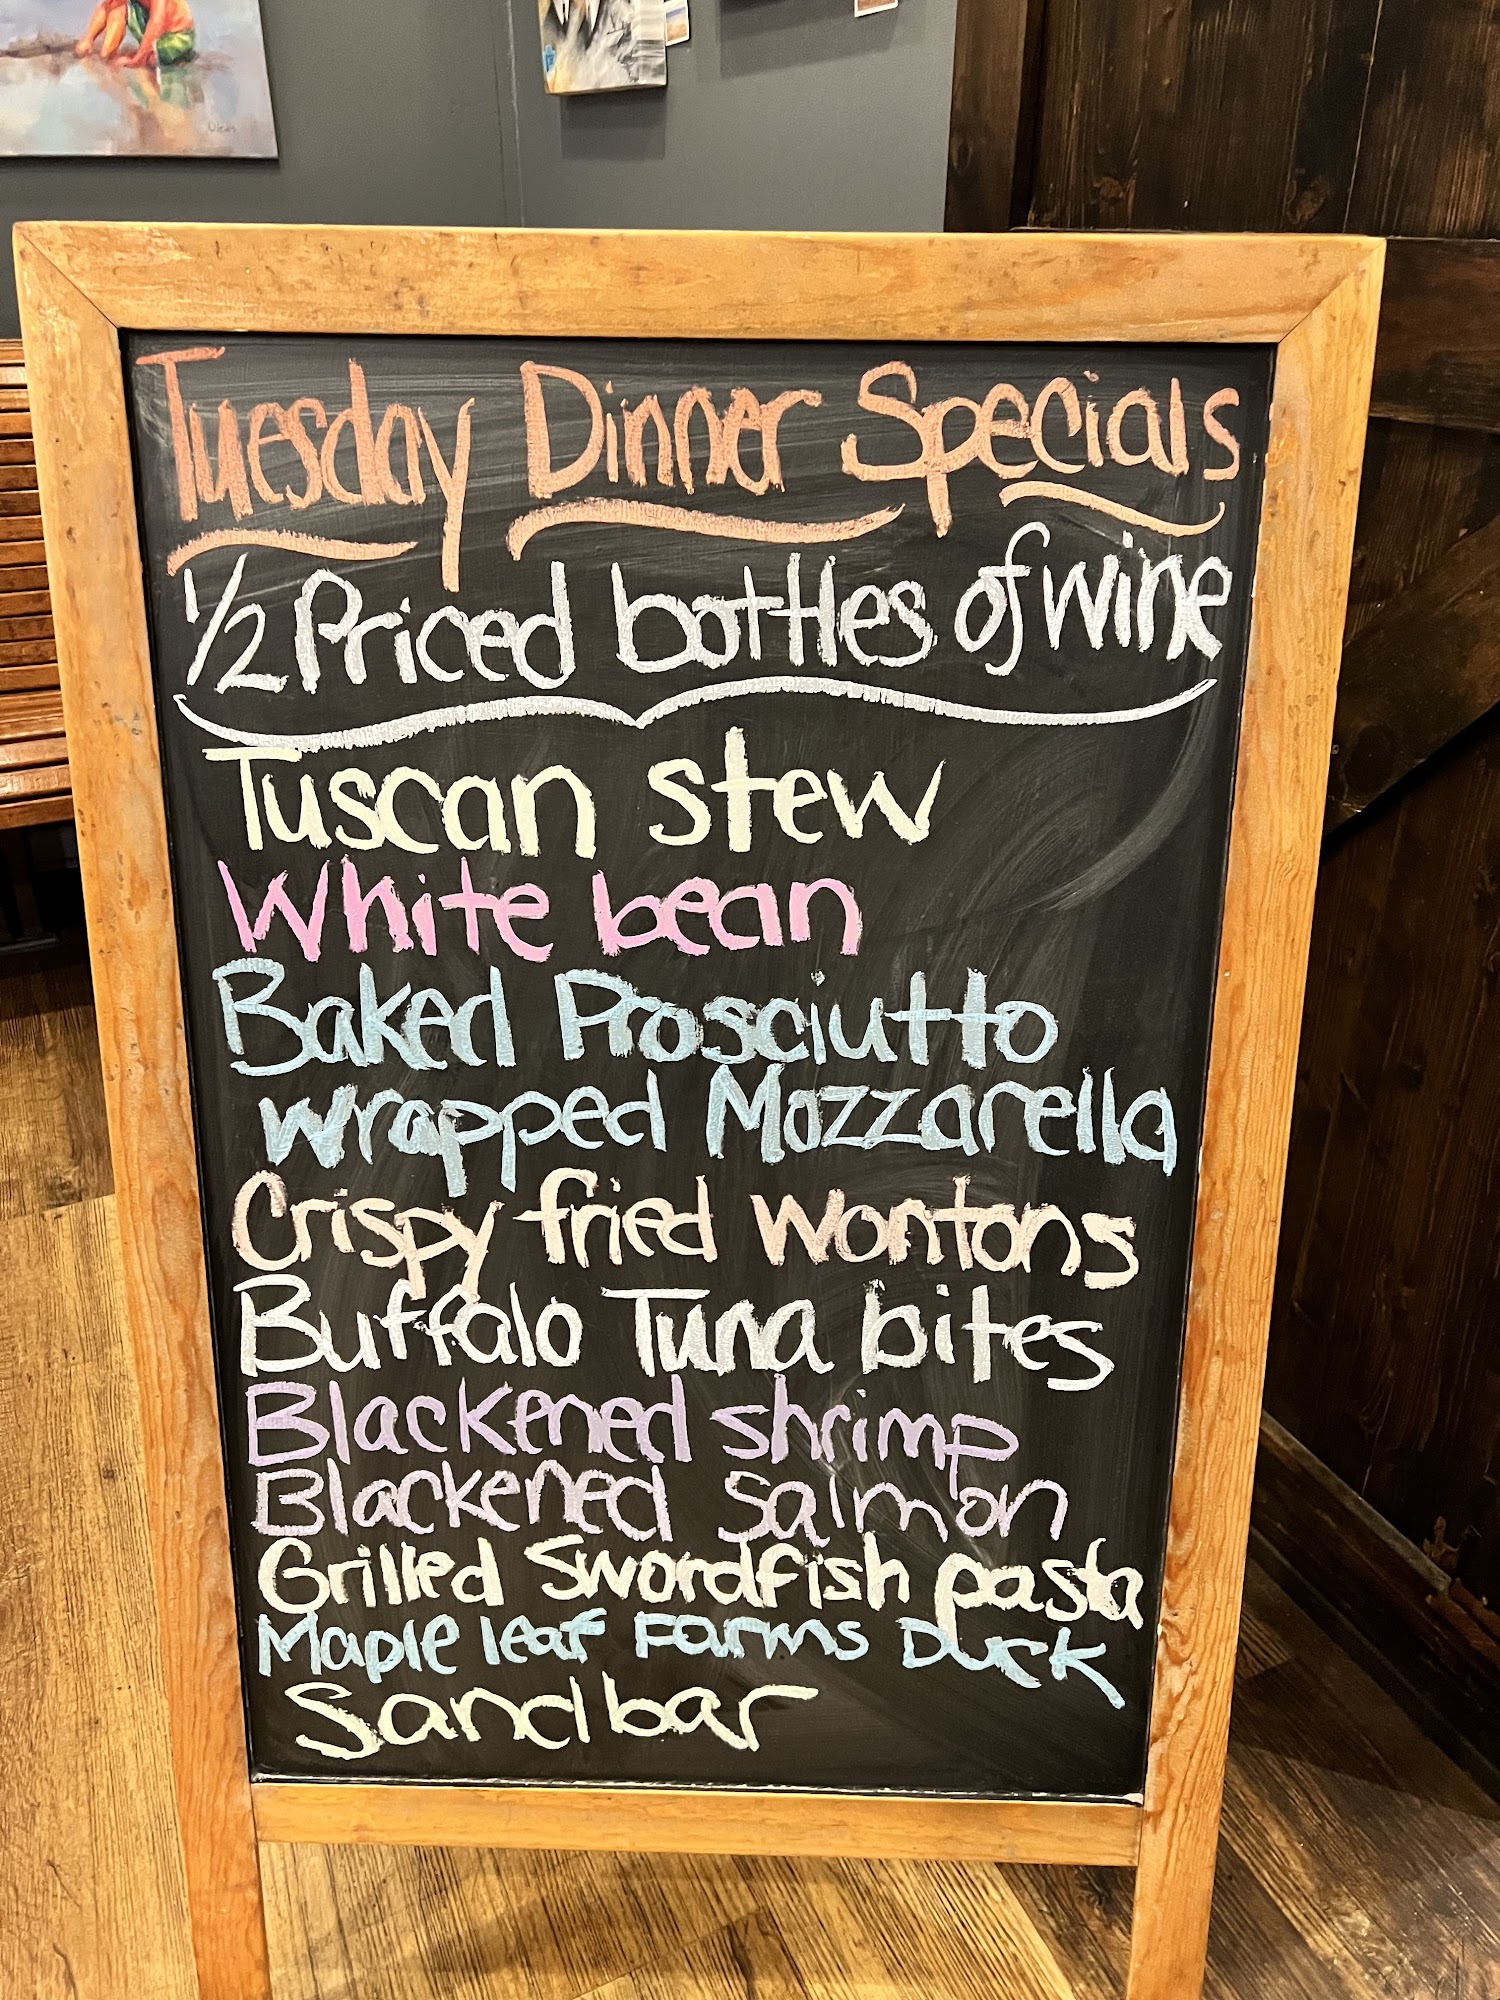 Tuesday Dinner Specials
1/2 Priced bottles of wine
Tuscan stew
White bean
Baked Prosciutto
wrapped Mozzarella
Crispy fried Wontons
Buffalo Tuna bites
Blackened shrimp
Blackened Salmon
Grilled Swordfish pasta
Maple leaf Farms Duck
Sandbar